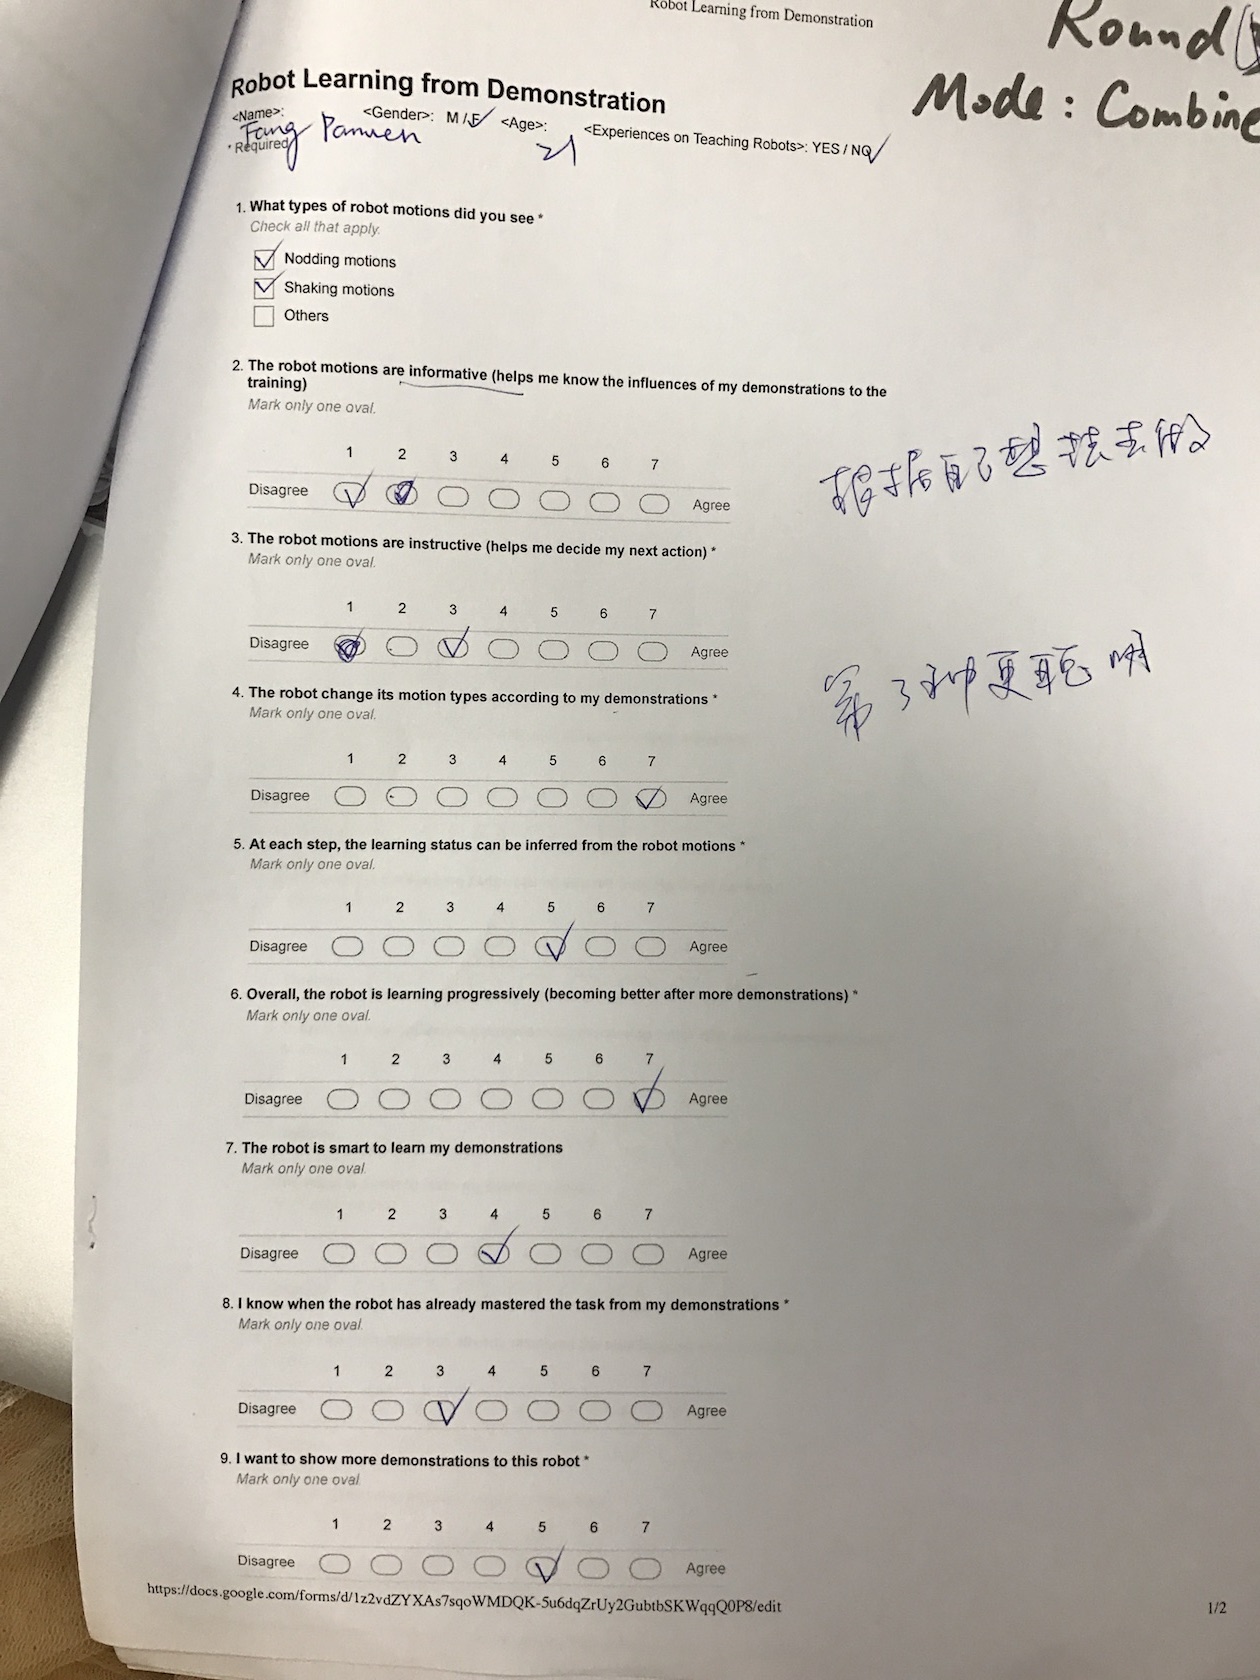 Robot Learning from Demonstration
Round
Mode: Combine
Robot Learning from Demonstration
<Name>: <Gender>: M / F <Age>: <Experiences on Teaching Robots>: YES / NO
Fang 21
* Required
1. What types of robot motions did you see *
Check all that apply.
Nodding motions
Shaking motions
Others
2. The robot motions are informative (helps me know the influences of my demonstrations to the
training)
Mark only one oval.
1 2 3 4 5 6 7
Disagree Agree
根据自己想法去做
3. The robot motions are instructive (helps me decide my next action) *
Mark only one oval.
1 2 3 4 5 6 7
Disagree Agree
第3种更聪明
4. The robot change its motion types according to my demonstrations *
Mark only one oval.
1 2 3 4 5 6 7
Disagree Agree
5. At each step, the learning status can be inferred from the robot motions *
Mark only one oval.
1 2 3 4 5 6 7
Disagree Agree
6. Overall, the robot is learning progressively (becoming better after more demonstrations) *
Mark only one oval.
1 2 3 4 5 6 7
Disagree Agree
7. The robot is smart to learn my demonstrations
Mark only one oval.
1 2 3 4 5 6 7
Disagree Agree
8. I know when the robot has already mastered the task from my demonstrations *
Mark only one oval.
1 2 3 4 5 6 7
Disagree Agree
9. I want to show more demonstrations to this robot *
Mark only one oval.
1 2 3 4 5 6 7
Disagree Agree
https://docs.google.com/forms/d/1z2vdZYXAs7sqoWMDQK-5u6dqZrUy2GubtbSKWqqQ0P8/edit
1/2